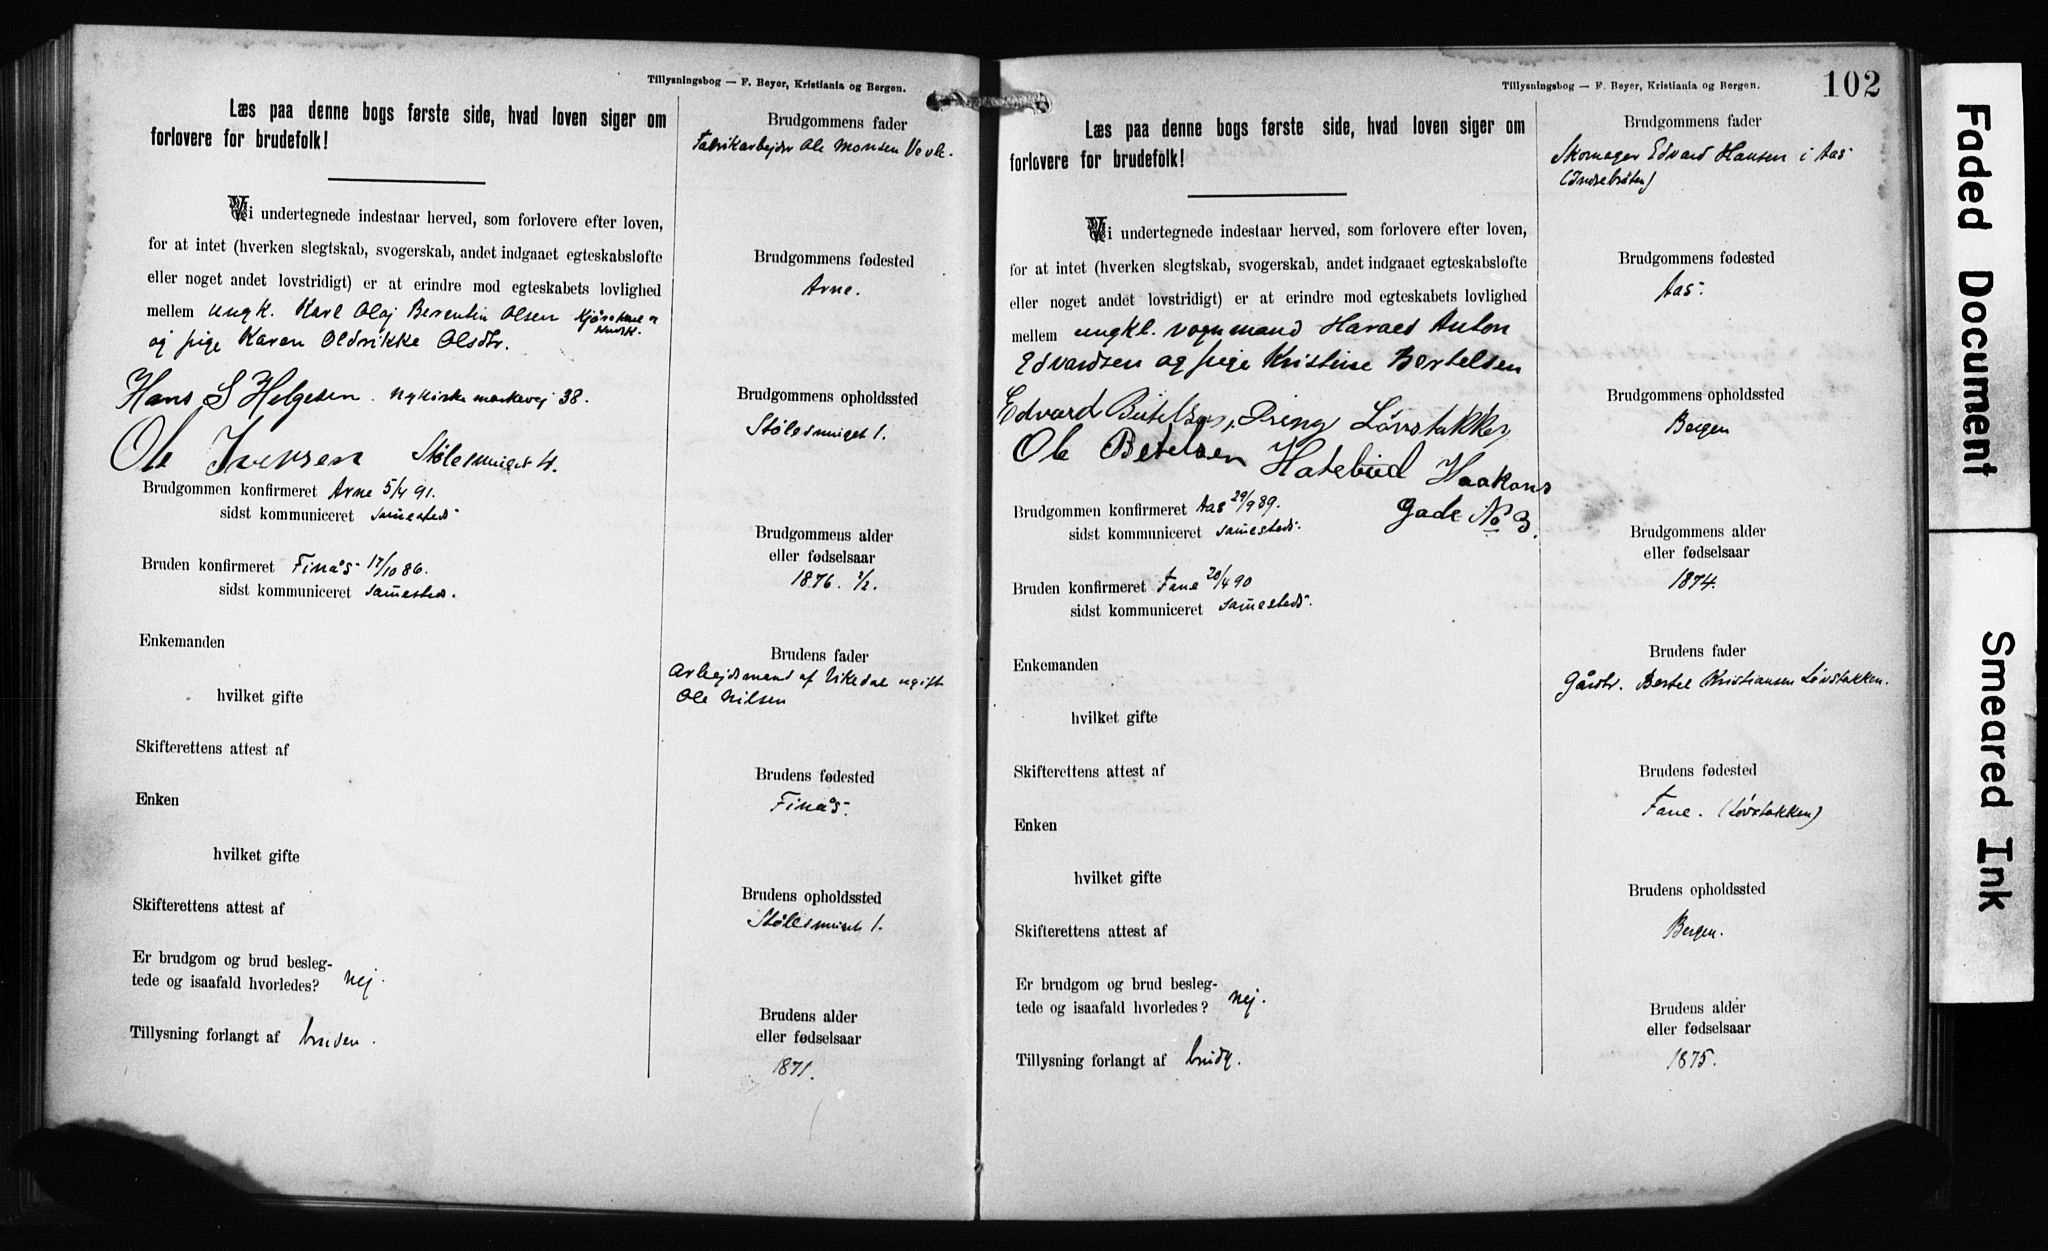 Tillysningsbog — F. Beyer, Kristiania og Bergen.
Læs paa denne bogs første side, hvad loven siger om
forlovere for brudefolk!
Vi undertegnede indestaar herved, som forlovere efter loven,
for at intet (hverken slegtskab, svogerskab, andet indgaaet egteskabsløfte
eller noget andet lovstridigt) er at erindre mod egteskabets lovlighed
mellem ungk. Karl Olaj Berentin Olsen
og pige Karen Oldrikke Olsdtr.
Hans S Helgesen. Nykirke markevej 38.
Ole Iversen Stølesmuget 4.
Brudgommen konfirmeret Arne 5/4 91.
sidst kommuniceret sammesteds
Bruden konfirmeret Finås 17/10 86.
sidst kommuniceret sammesteds.
Enkemanden
hvilket gifte
Skifterettens attest af
Enken
hvilket gifte
Skifterettens attest af
Er brudgom og brud besleg-
tede og isaafald hvorledes? nej.
Tillysning forlangt af bruden.
Brudgommens fader
Fabrikarbejder Ole Monsen Vevle.
Brudgommens fødested
Arne.
Brudgommens opholdssted
Stølesmuget 1.
Brudgommens alder
eller fødselsaar
1876. 2/2.
Brudens fader
Arbejdsmand af Vikedal ugift
Ole Nilsen
Brudens fødested
Finås.
Brudens opholdssted
Stølesmuget 1.
Brudens alder
eller fødselsaar
1871.
Tillysningsbog — F. Beyer, Kristiania og Bergen.
102
Læs paa denne bogs første side, hvad loven siger om
forlovere for brudefolk!
Vi undertegnede indestaar herved, som forlovere efter loven,
for at intet (hverken slegtskab, svogerskab, andet indgaaet egteskabsløfte
eller noget andet lovstridigt) er at erindre mod egteskabets lovlighed
mellem ungkl. vognmand Harald Anton
Edvardsen og pige Kristine Bertelsen
Edvard Bertelsen, Løvstakken
Ole Betelsen Hatebød Haakons
Gade No 3.
Brudgommen konfirmeret Aas 29/9 89.
sidst kommuniceret sammesteds.
Bruden konfirmeret Fane 20/4 90
sidst kommuniceret sammesteds.
Enkemanden
hvilket gifte
Skifterettens attest af
Enken
hvilket gifte
Skifterettens attest af
Er brudgom og brud besleg-
tede og isaafald hvorledes? nej.
Tillysning forlangt af brudg.
Brudgommens fader
Skomager Edvard Hansen i Aas
Brudgommens fødested
Aas.
Brudgommens opholdssted
Bergen
Brudgommens alder
eller fødselsaar
1874.
Brudens fader
Gårdbr. Bertel Kristiansen Løvstakken.
Brudens fødested
Fane. (Løvstakken)
Brudens opholdssted
Bergen.
Brudens alder
eller fødselsaar
1875.
Faded Document
Smeared Ink